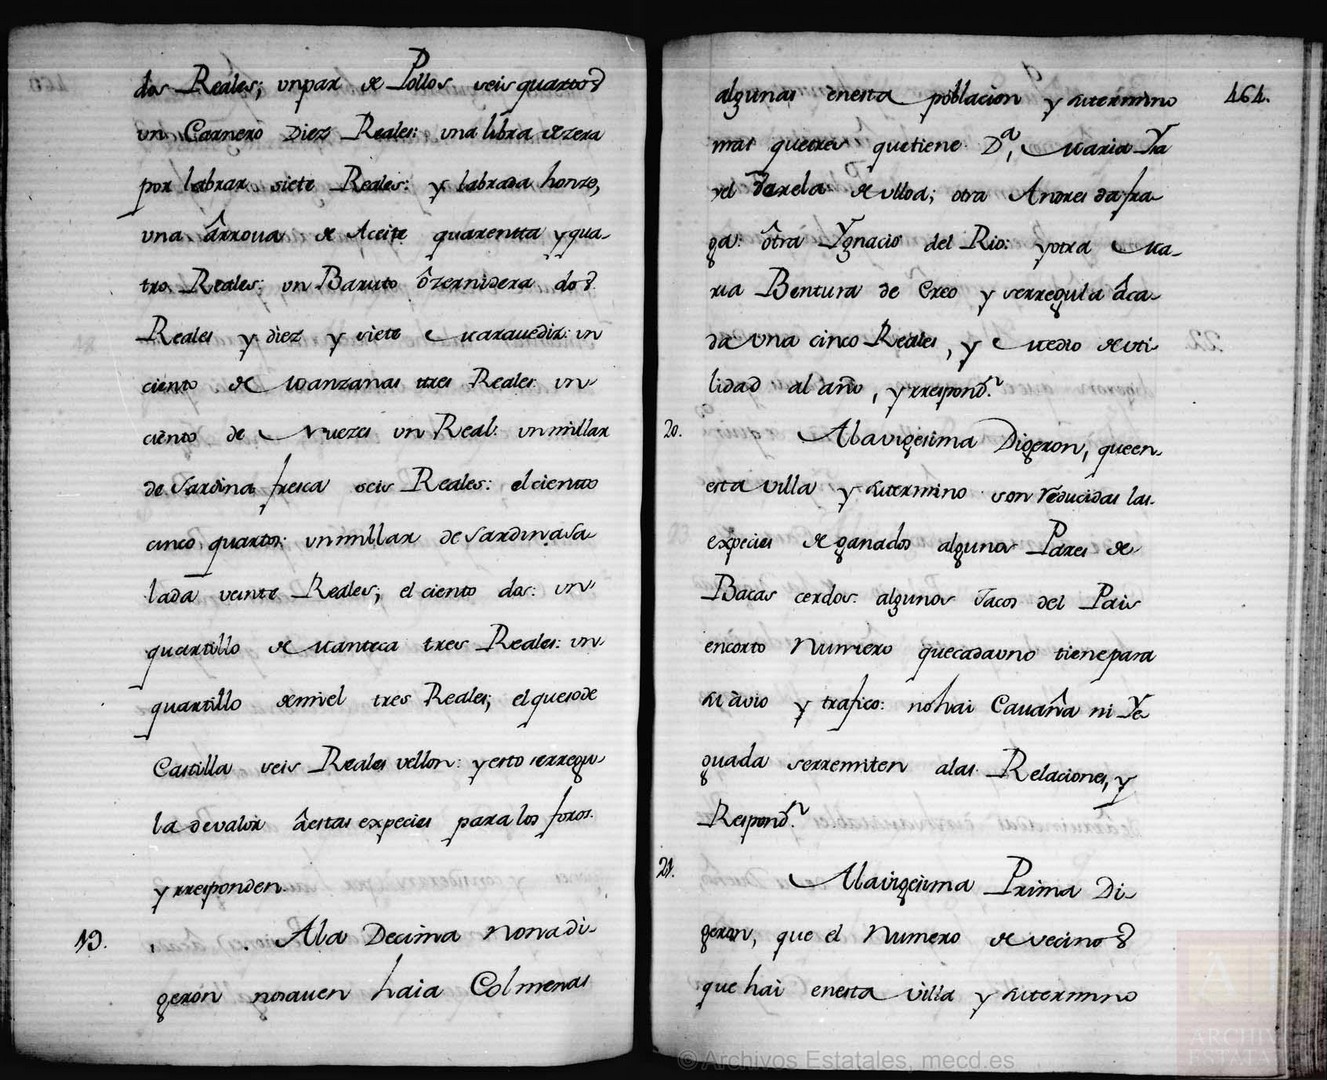 dos Reales; un par de Pollos seis quartos
un Carnero Diez Reales: una libra de zera
por labrar siete Reales: y labrada honze,
una ârroua de Aceite quarentta y qua-
tro Reales: un Baruto ô zernidera dos
Reales y diez y siete Marauedis: un
ciento de Manzanas tres Reales: un
ciento de Nuezes un Real: un millar
de sardina fresca seis Reales: el ciento
cinco quartos: un millar de sardina sa
lada veinte Reales; el ciento dos: un
quartillo de Manteca tres Reales: un
quartillo de miel tres Reales; el queso de
Castilla seis Reales vellon: y esto se rregu-
la de valor â estas expecies para los foros.
y rresponden.
19. A la Decima nona di-
geron no sauen haia Colmenas
464.
algunas en esta poblacion y su termino
mas que tres que tiene Dª, Maria Ysa
vel Varela de Ulloa; otra Andres da fra-
ga: ôtra Ygnacio del Rio: y otra Ma-
ria Bentura de Creo y se rregula â ca-
da una cinco Reales, y Medio de uti
lidad al año, y rrespond.n
20. A la vigesima Digeron, que en
esta villa y su termino son reducidas las
expecies de ganados algunos Pares de
Bacas cerdos: algunos Jacos del Pais
en corto Numero que cada uno tiene para
su âvio y trafico: no hai Cauaña ni Ye
guada se rremiten a las Relaciones, y
Respond.n
21. A la vigesima Prima Di-
geron, que el Numero de vecinos
que hai en esta villa y su termino
© Archivos Estatales, mecd.es
ARCHIVOS
ESTATALES